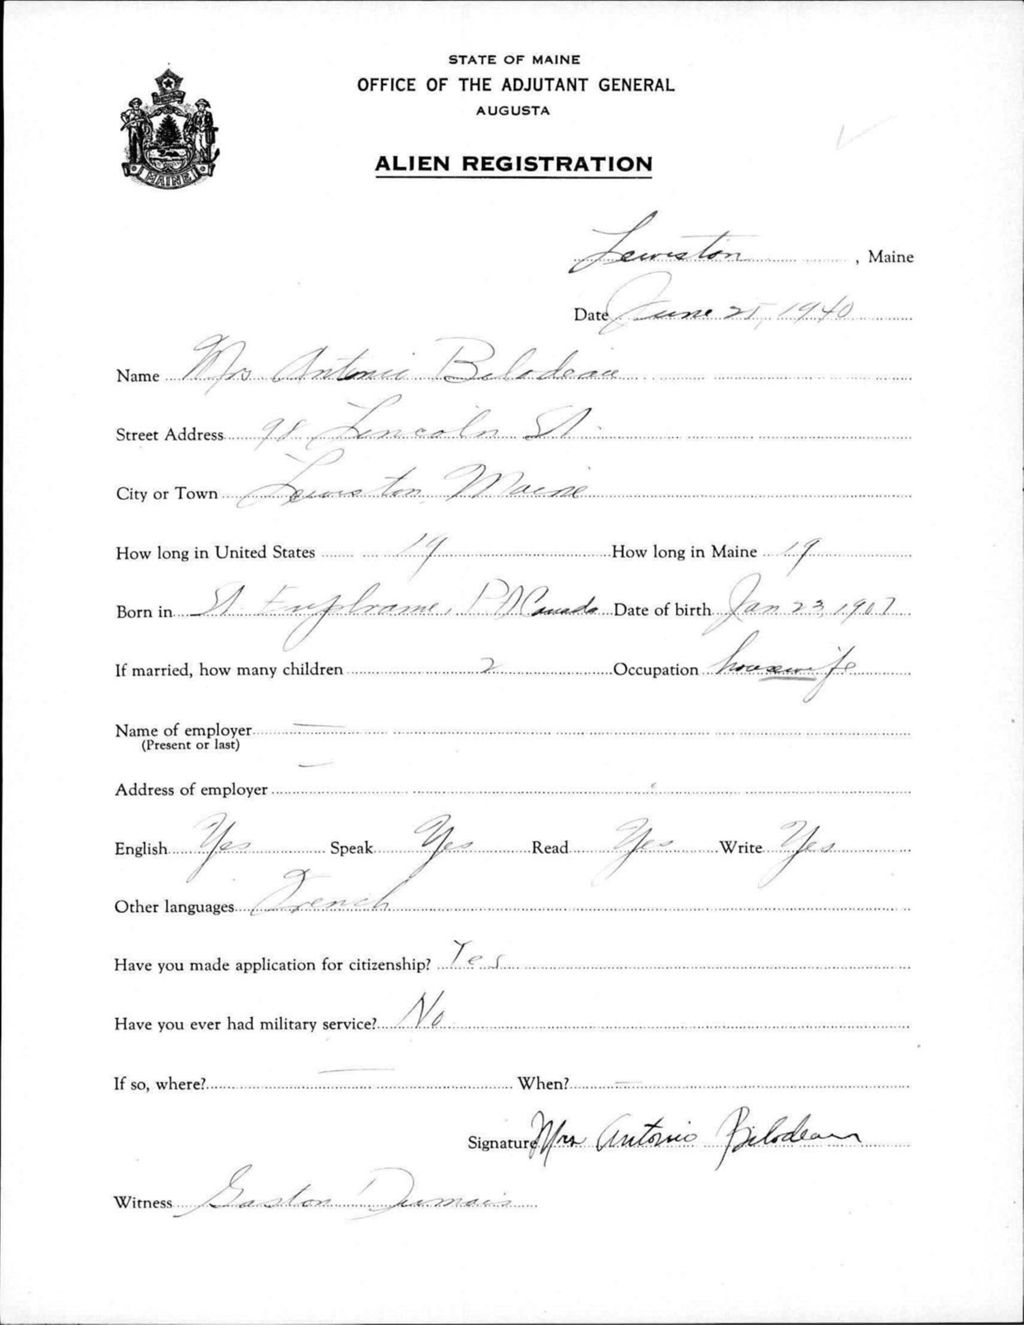 STATE OF MAINE
OFFICE OF THE ADJUTANT GENERAL
AUGUSTA
MAINE
ALIEN REGISTRATION
Lewiston, Maine
Date June 25, 1940
Name Mrs Antonio Bilodeau
Street Address 98 Lincoln St.
City or Town Lewiston Maine
How long in United States 19 How long in Maine 19
Born in St. Euphrame, P Canada Date of birth Jan 23, 1907
If married, how many children 2 Occupation housewife
Name of employer —
(Present or last)
Address of employer —
English Yes Speak Yes Read Yes Write Yes
Other languages French
Have you made application for citizenship? Yes
Have you ever had military service? No
If so, where? — When? —
Signature Mrs Antonio Bilodeau
Witness Gaston Dumais